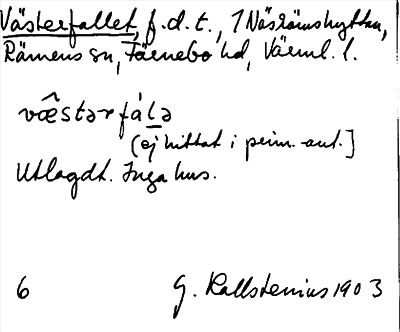 Västerfallet, f.d.t., 1 Näsrämshyttan,
Rämens sn, Färnebo hd, Värml. l.
væ̂stərfála
(ej hittat i prim.-aut.]
Utlagdt. Inga hus.
6 G. Kallstenius 1903